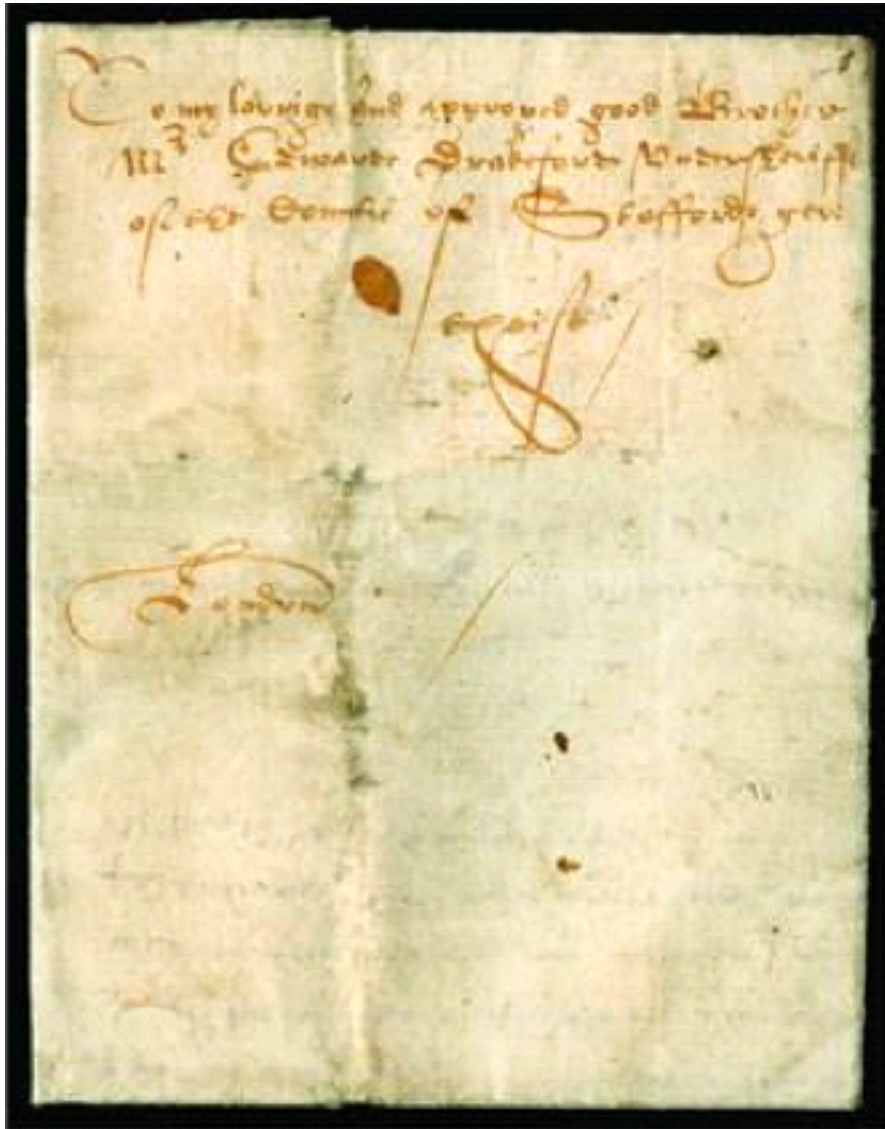 To my lovinge and approved good Brother
Mr Edwarde Drakeforde Undersheriffe
of the Countie of Stafforde geve
these
London